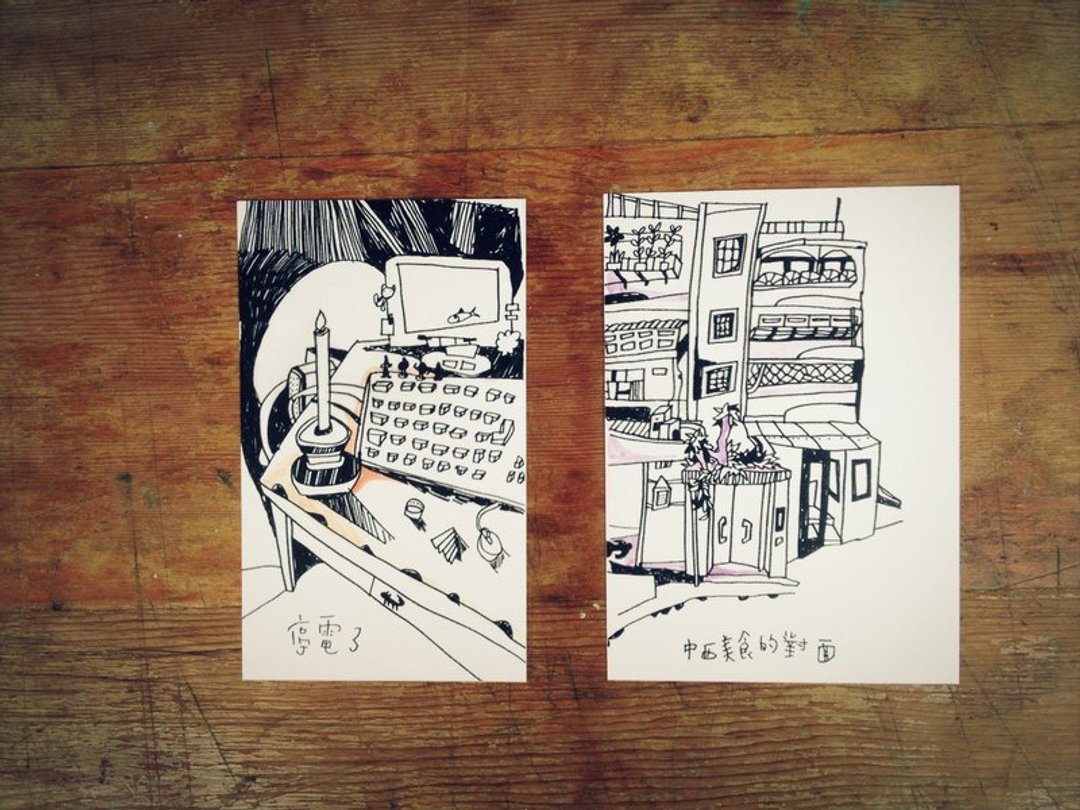 停電了
中西美食的對面